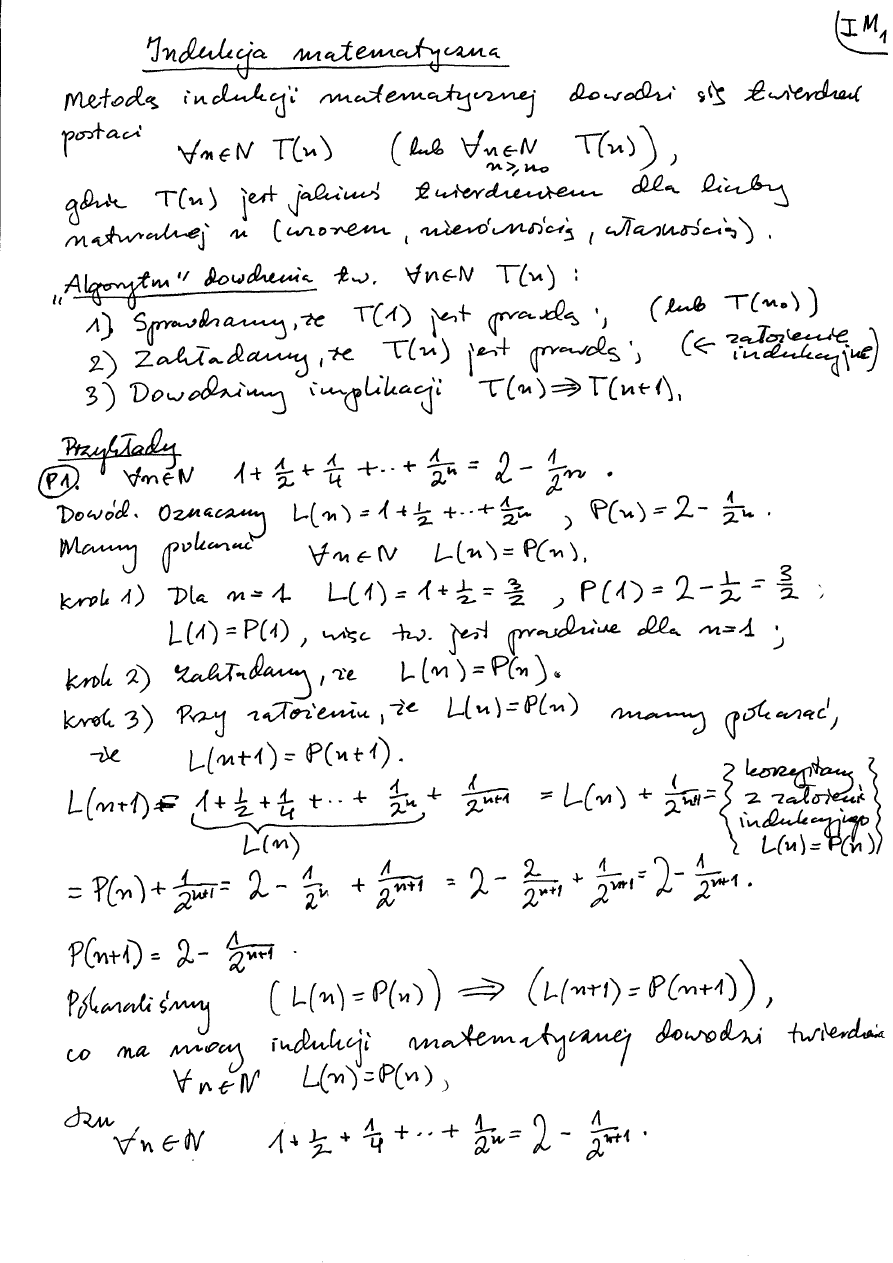 IM1
Indukcja matematyczna
Metodą indukcji matematycznej dowodzi się twierdzeń
postaci
∀n∈N T(n) (lub ∀n∈N T(n)),
n≥n₀
gdzie T(n) jest jakimś twierdzeniem dla liczby
naturalnej n (wzorem, nierównością, własnością).
"Algorytm" dowodzenia tw. ∀n∈N T(n) :
1) Sprawdzamy, że T(1) jest prawdą ; (lub T(n₀))
2) Zakładamy, że T(n) jest prawdą ; (← założenie indukcyjne)
3) Dowodzimy implikacji T(n) ⇒ T(n+1).
Przykłady
P1. ∀n∈N 1 + 1/2 + 1/4 + ... + 1/2ⁿ = 2 - 1/2ⁿ .
Dowód. Oznaczmy L(n) = 1 + 1/2 + ... + 1/2ⁿ , P(n) = 2 - 1/2ⁿ .
Mamy pokazać ∀n∈N L(n) = P(n).
krok 1) Dla n=1 L(1) = 1 + 1/2 = 3/2 , P(1) = 2 - 1/2 = 3/2 ;
L(1) = P(1) , więc tw. jest prawdziwe dla n=1 ;
krok 2) Zakładamy, że L(n) = P(n).
krok 3) Przy założeniu, że L(n) = P(n) mamy pokazać,
że L(n+1) = P(n+1).
L(n+1) = 1 + 1/2 + 1/4 + ... + 1/2ⁿ + 1/2ⁿ⁺¹ = L(n) + 1/2ⁿ⁺¹ = { korzystamy z założenia indukcyjnego L(n) = P(n) }
L(n)
= P(n) + 1/2ⁿ⁺¹ = 2 - 1/2ⁿ + 1/2ⁿ⁺¹ = 2 - 2/2ⁿ⁺¹ + 1/2ⁿ⁺¹ = 2 - 1/2ⁿ⁺¹ .
P(n+1) = 2 - 1/2ⁿ⁺¹ .
Pokazaliśmy (L(n) = P(n)) ⇒ (L(n+1) = P(n+1)),
co na mocy indukcji matematycznej dowodzi twierdzenia
∀n∈N L(n) = P(n),
tzn
∀n∈N 1 + 1/2 + 1/4 + ... + 1/2ⁿ = 2 - 1/2ⁿ⁺¹ .